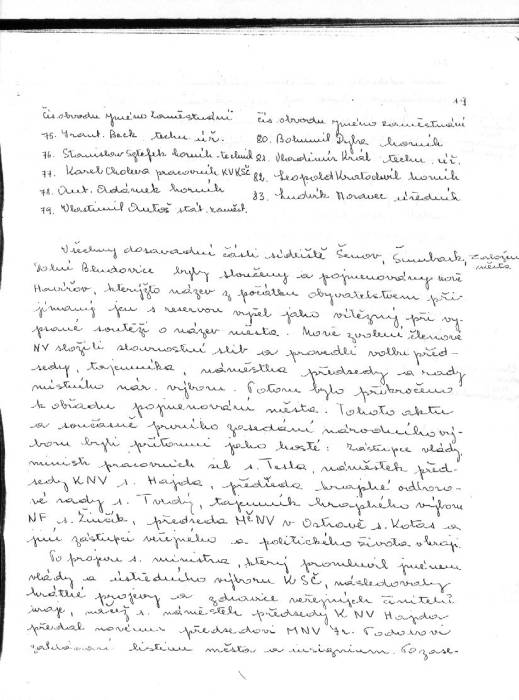 19
čís. obvodu jméno zaměstnání
75. Frant. Beck techn. úř.
76. Stanislav horník-technik
77. Karel Choleva pracovník KVKSČ
78. Ant. Adámek horník
79. Vlastimil Antoš stát. zaměst.
čís. obvodu jméno zaměstnání
80. Bohumil Dyba horník
81. Vladimír Král techn. úř.
82. Leopold Kratochvil horník
83. Ludvík Moravec úředník
Všechny dosavadní části sídliště Šenov, Šumbark,
založení města
Dolní Bludovice byly sloučeny a pojmenovány nově
Havířov, kterýžto název z počátku obyvatelstvem při-
jímaný jen s reservou vyšel jako vítězný při vy-
psané soutěži o název města. Nově zvolení členové
NV složili slavnostní slib a provedli volbu před-
sedy, tajemníka, náměstka předsedy a rady
místního nár. výboru. Potom bylo přikročeno
k obřadu pojmenování města. Tohoto aktu
a současně prvního zasedání národního vý-
boru byli přítomni jako hosté: Zástupce vlády,
ministr pracovních sil s. Tesla, náměstek před-
sedy KNV s. Hajda, předseda krajské odboro-
vé rady s. Tvrdý, tajemník krajského výboru
NF s. Žinčák, předseda MěNV v Ostravě s. Kotas a
jiní zástupci veřejného a politického života v kraji.
Po projevu s. ministra, který promluvil jménem
vlády a ústředního výboru KSČ, následovaly
krátké projevy a zdravice veřejných činitelů
kraje, načež s. náměstek předsedy KNV Hajda
předal novému předsedovi MNV Fr. Podolovi
zakládací listinu města a insignium. Po zase-